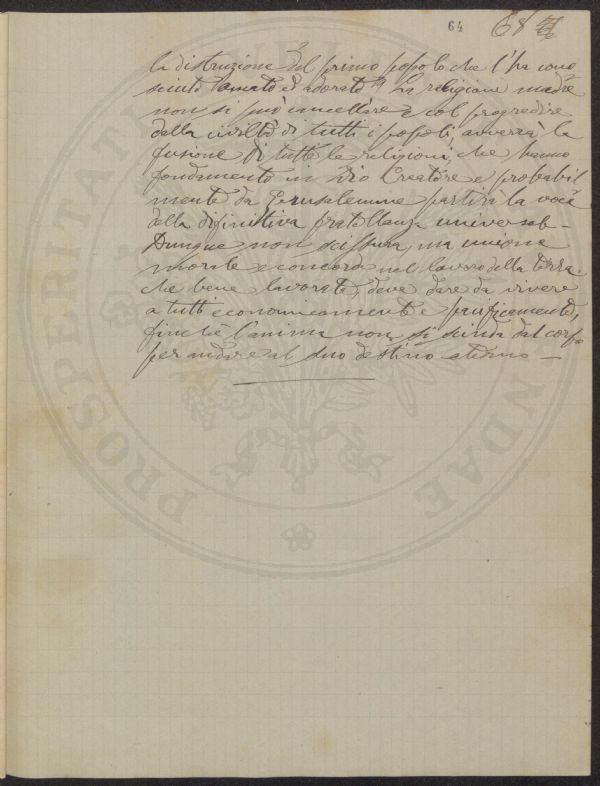 64 68
la distruzione del primo popolo che l'ha cono
sciuto amato ed adorato? La religione madre
non si può cancellare e col progredire
della civiltà di tutti i popoli, avverrà la
fusione di tutte le religioni, che hanno
fondamento in Dio Creatore e probabil
mente da Gerusalemme partirà la voce
della difinitiva fratellanza universale –
Dunque non scissura, ma unione
morale e concorde nel lavoro della terra
che bene lavorata, deve dare da vivere
a tutti economicamente e pacificamente,
finchè l'anima non si scinda dal corpo
per andare al suo destino eterno —
PROSPERITATI
NDAE